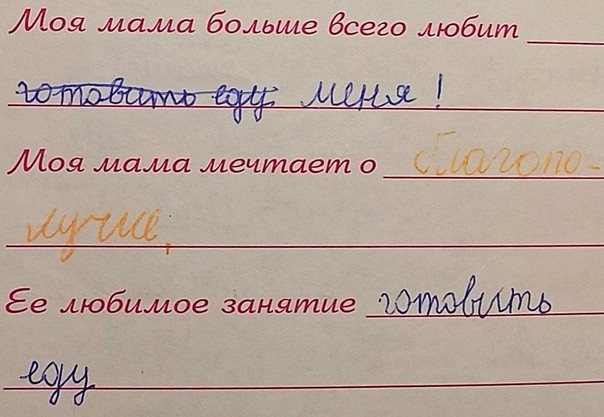 Моя мама больше всего любит
готовить еду меня!
Моя мама мечтает о благопо-
лучие,
Ее любимое занятие готовить
еду